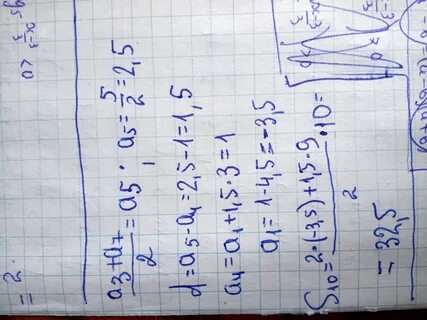 = 2.
x-3/3 < 0
a3+a7/2 = a5; a5 = 5/2 = 2,5
d = a5-a4 = 2,5-1 = 1,5
a4 = a1+1,5·3 = 1
a1 = 1-4,5 = -3,5
S10 = 2·(-3,5)+1,5·9/2 ·10 =
= 32,5